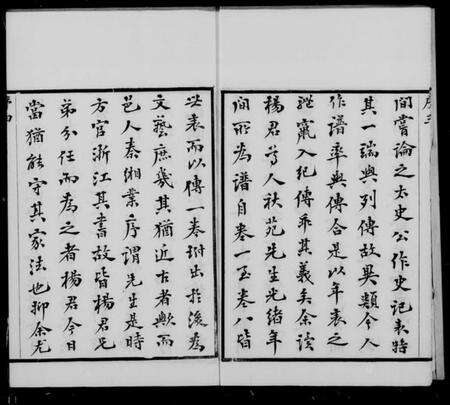 間嘗論之太史公作史記表特
其一端與列傳故異類今人
作譜率與傳合是以年表之
體竄入紀傳乖其義矣余讀
楊君尊人秋苑先生光緒年
間所為譜自卷一至卷八皆
世表而以傳一卷附出於後為
文藝庶幾其猶近古者歟而
邑人秦緗業序謂先生是時
方官浙江其書故皆楊君兄
弟分任而為之者楊君今日
當猶能守其家法也抑余尤